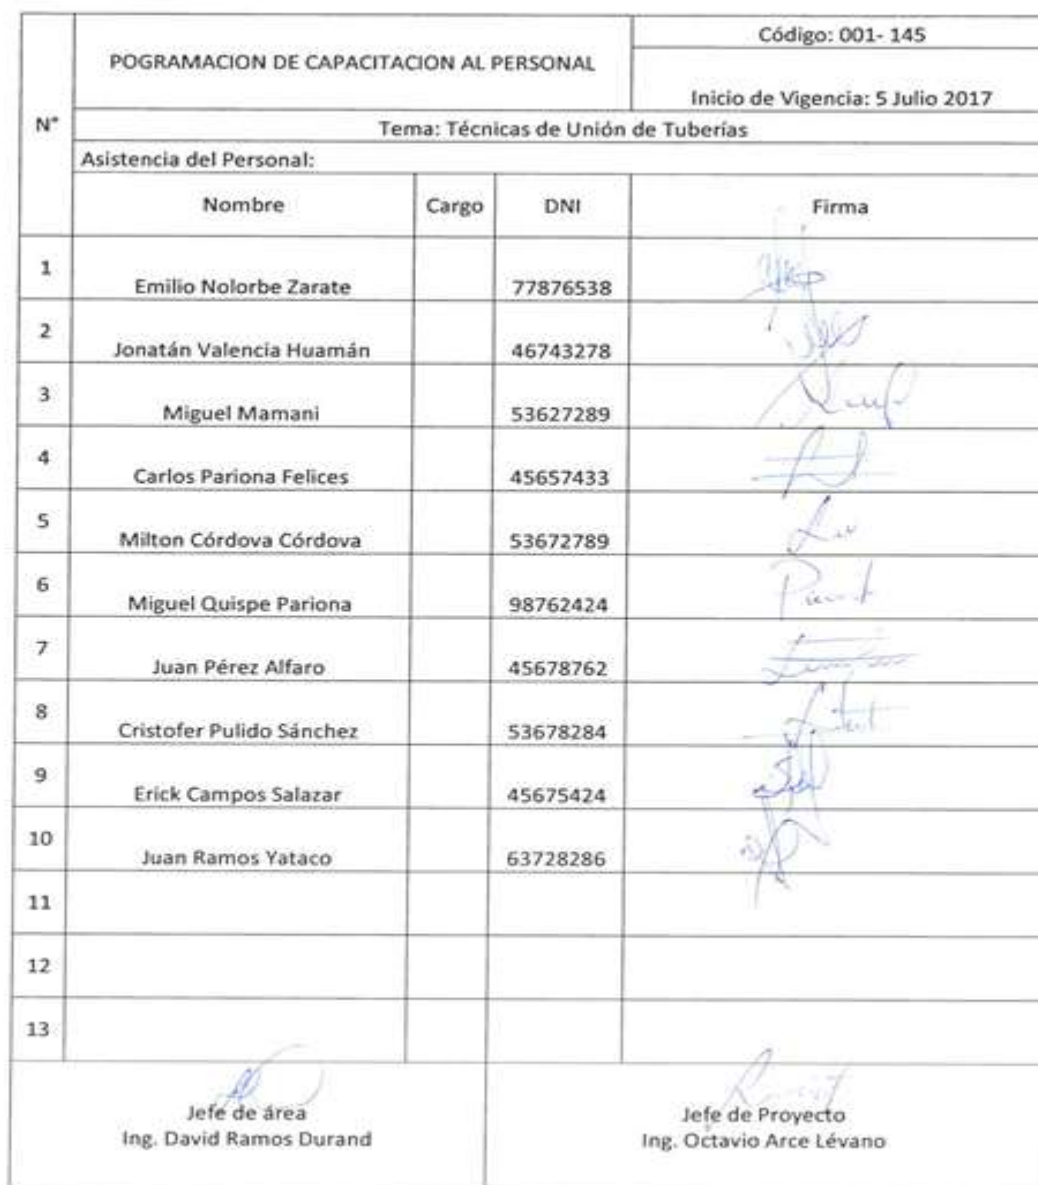 Código: 001- 145
POGRAMACION DE CAPACITACION AL PERSONAL
Inicio de Vigencia: 5 Julio 2017
N°
Tema: Técnicas de Unión de Tuberías
Asistencia del Personal:
Nombre Cargo DNI Firma
1 Emilio Nolorbe Zarate 77876538
2 Jonatán Valencia Huamán 46743278
3 Miguel Mamani 53627289
4 Carlos Pariona Felices 45657433
5 Milton Córdova Córdova 53672789
6 Miguel Quispe Pariona 98762424
7 Juan Pérez Alfaro 45678762
8 Cristofer Pulido Sánchez 53678284
9 Erick Campos Salazar 45675424
10 Juan Ramos Yataco 63728286
11
12
13
Jefe de área Jefe de Proyecto
Ing. David Ramos Durand Ing. Octavio Arce Lévano